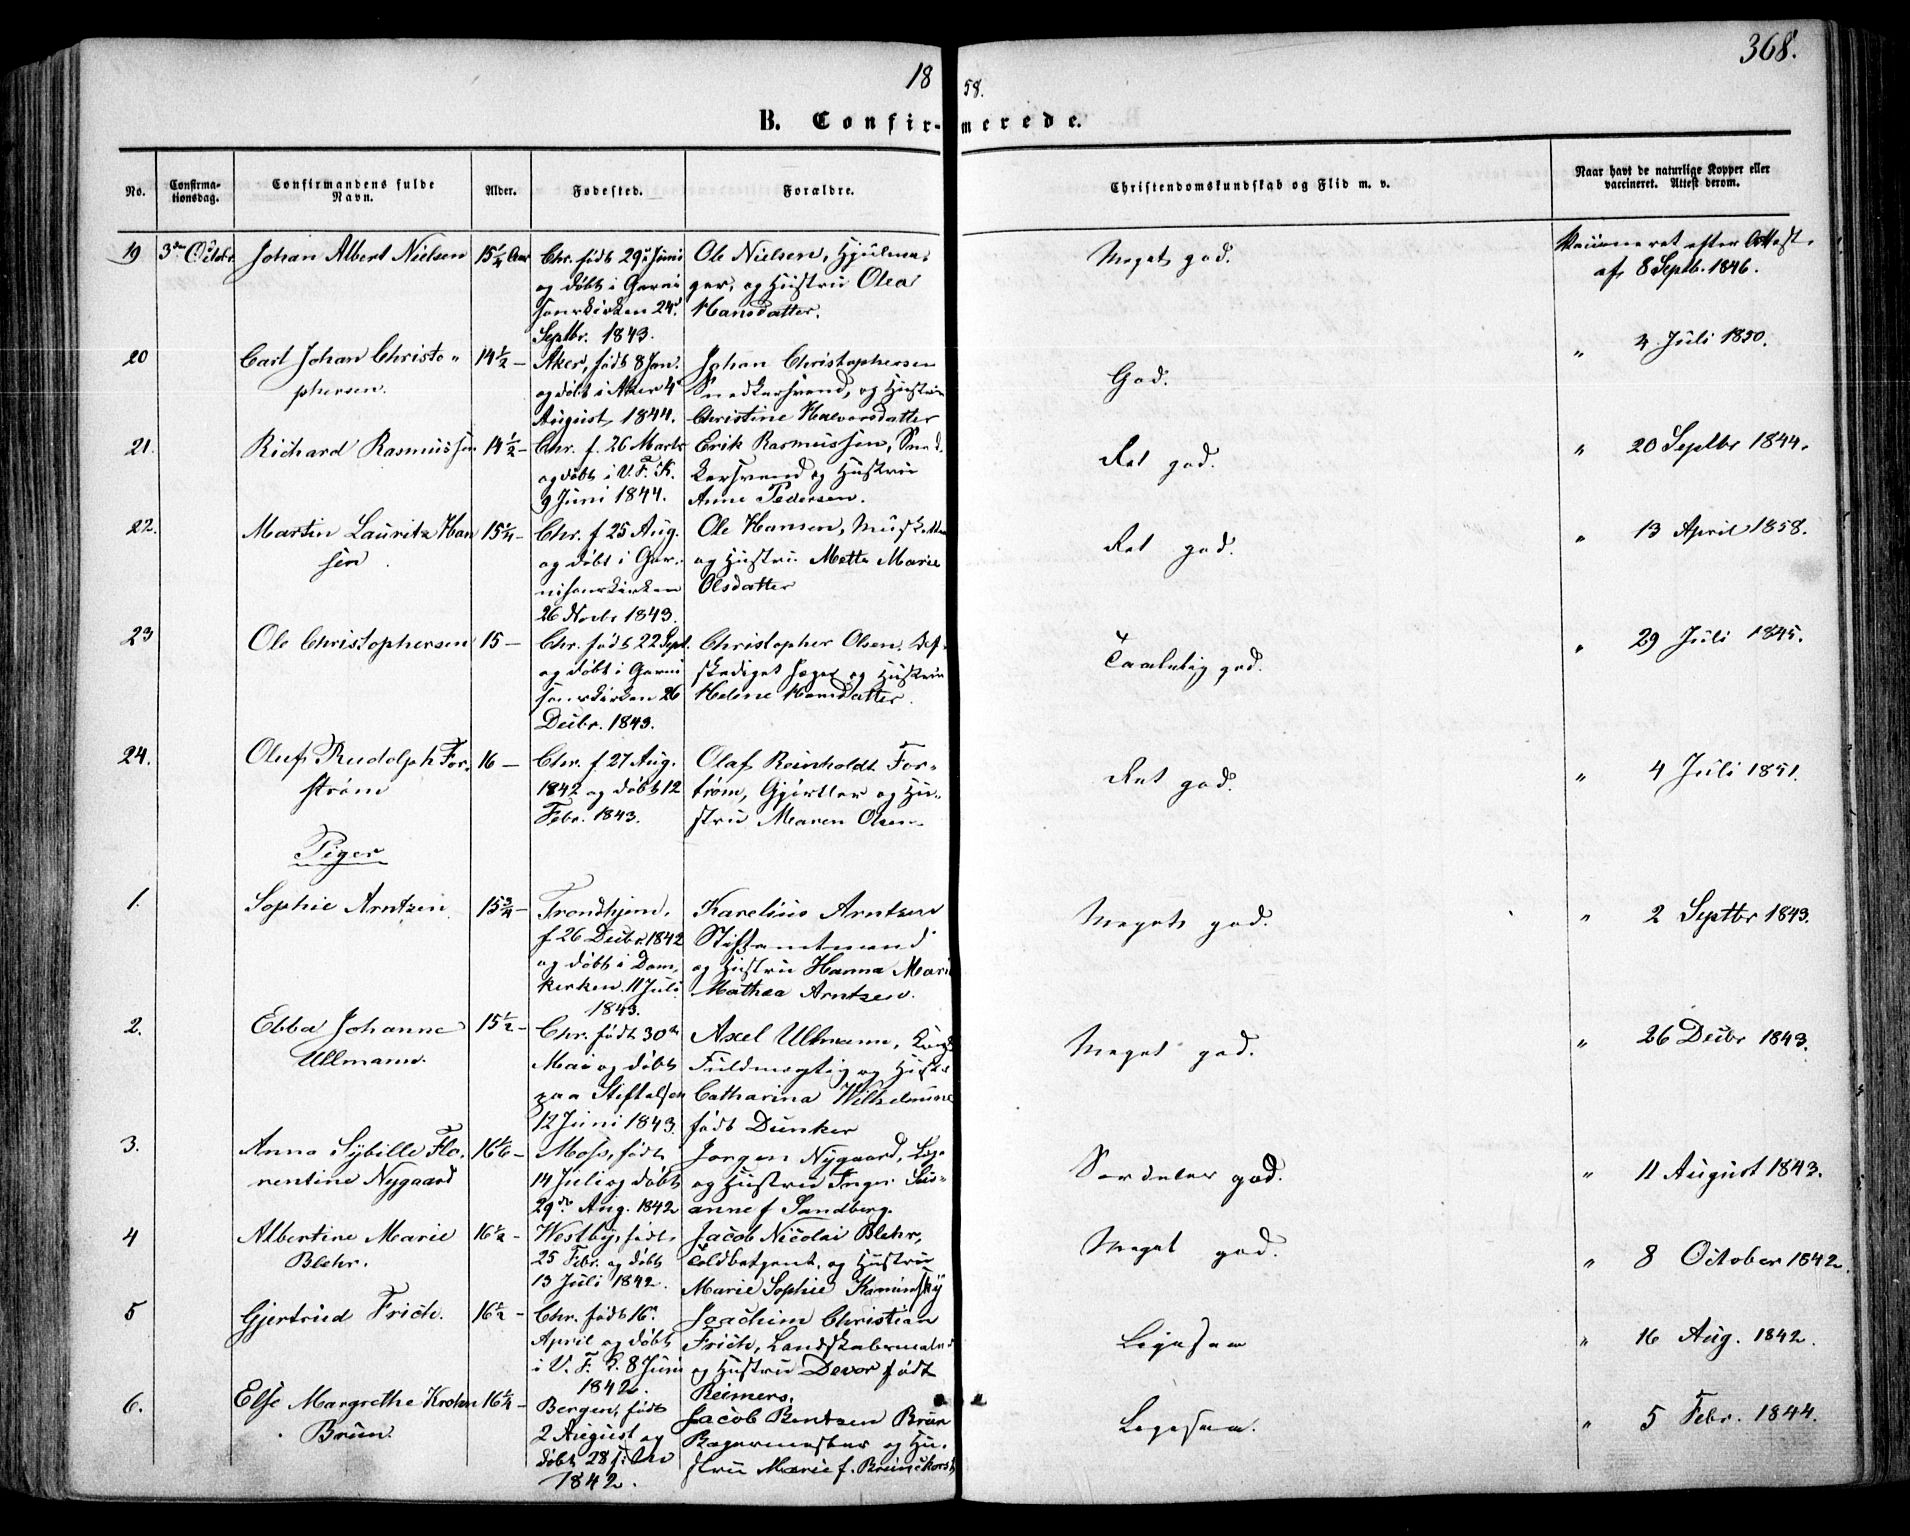 368.
18 58.
B. Confir- merede.
No.
Confirma-
tionsdag.
Confirmandens fulde
Navn.
Alder.
Fødested.
Forældre.
Christendomskundskab og Flid m. v.
Naar havt de naturlige Kopper eller
vaccineret. Attest derom.
19 3die Octobr Johan Albert Nielsen 15 1/4 Aar
Chr. født 29 Juni
og døbt i Garni
sonskirken 24
Septbr. 1843.
Ole Nielsen, Hjulma
ger, og Hustru Olea
Hansdatter.
Meget god.
Vaccineret efter Attest
af 8 Septb. 1846.
20 Carl Johan Christo-
phersen. 14 1/2 –
Aker, født 8 Jan.
og døbt i Aker 4
August 1844.
Johan Christophersen
Snedkersvend, og Hustru
Christine Halvorsdatter
God.
" 4 Juli 1850.
21. Richard Rasmussen 14 1/2 –
Chr. f. 26 Marts
og døbt i V. F. K.
9 Juni 1844.
Erik Rasmussen, Sned
kersvend og Hustru
Anne Pedersen.
Ret god.
" 20 Septbr 1844.
22. Martin Lauritz Han
sen 15 1/4 –
Chr. f 25 Aug.
og døbt i Gar-
nisonskirken
26 Novbr 1843.
Ole Hansen,
og Hustru Mette Marie
Olsdatter
Ret god.
" 13 April 1858.
23 Ole Christophersen 15 –
Chr. født 22 Sept.
og døbt i Garni
sonskirken 26
Decbr. 1843.
Christopher Olsen, Af-
skediget Jæger og Hustru
Helene Hansdatter.
Taalelig god.
" 29 Juli 1845.
24. Oluf Rudolph For-
strøm 16 –
Chr. f. 27 Aug.
1842 og døbt 12
Febr. 1843.
Olaf Reinholdt For-
trøm, Gjørtler og Hu-
stru Maren Olsen
Ret god.
" 4 Juli 1851.
Piger
1. Sophie Arntzen 15 3/4 –
Trondhjem,
f 26 Decbr. 1842
og døbt i Dom
kirken 11 Juli
1843.
Karelius Arntzen
Stiftamtmand
og Hustru Hanna Marie
Mathea Arntzen.
Meget god.
" 2 Septbr 1843.
2. Ebba Johanne
Ullmann. 15 1/2 –
Chr. født 30te
Mai og døbt
paa Stiftelsen
12 Juni 1843.
Axel Ullmann,
Fuldmægtig og Hustru
Catharina Wilhelmine
født Dunker
Meget god.
" 26 Decbr 1843.
3. Anna Sybille Flo-
rentine Nygaard 16 1/6 –
Moss, født
14 Juli og døbt
29de Aug. 1842
Jørgen Nygaard,
og Hustru Inger Sus-
anne f Sandberg.
Særdeles god.
" 11 August 1843.
4 Albertine Marie
Blehr. 16 1/2 –
Westby, født
25 Febr. og døbt
13 Juli 1842.
Jacob Nicolai Blehr,
Toldbetjent, og Hustru
Marie Sophie Kaminsky
Meget god.
" 8 October 1842.
5 Gjertrud Frich. 16 1/2 –
Chr. født 16
April og døbt
i V. F. K. 8 Juni
1842.
Joachim Christian
Frich, Landskabsmaler
og Hustru Devor født
Reimers.
Ligesaa
" 16 Aug. 1842.
6. Else Margrethe Krohn
Brun 16 1/4 –
Bergen, født
2 August og
døbt 28
1842.
Jacob Bentzen Brun
Bagermester og Hu-
stru Marie f.
Ligesaa.
" 5 Febr. 1844.